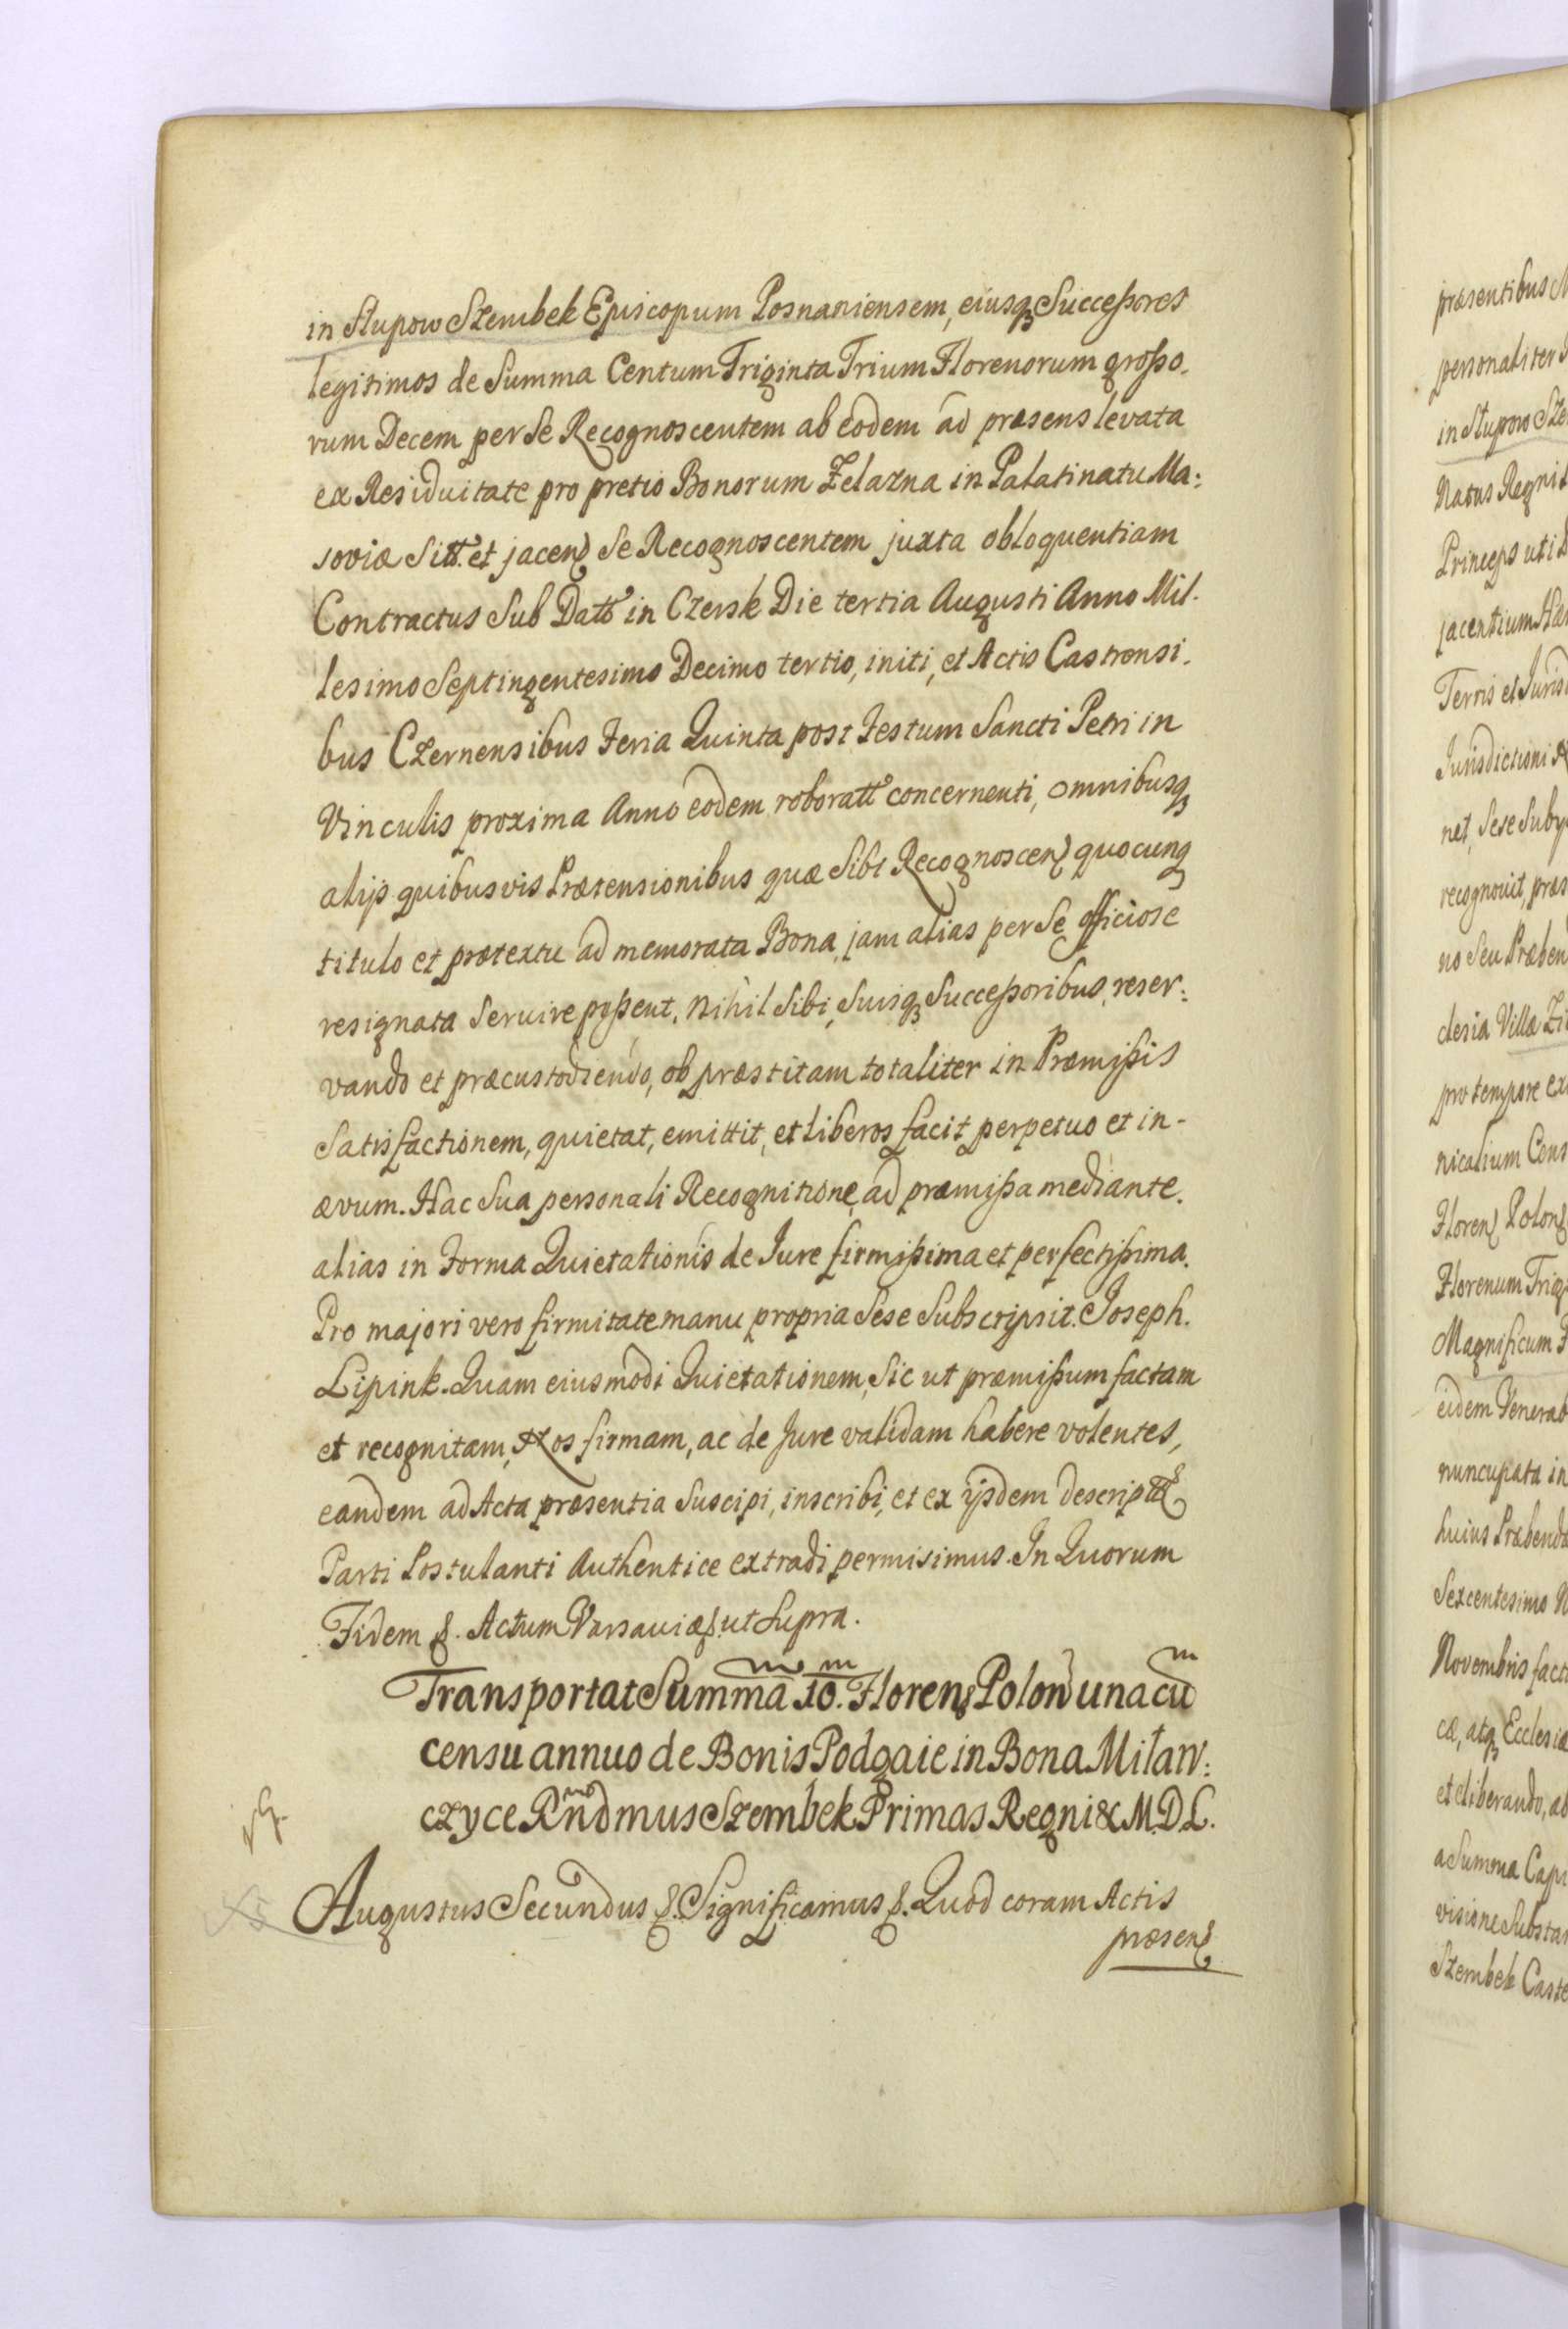 in Slupow Szembek Episcopum Posnaniensem, eiusq3 Successores
legitimos de Summa Centum Triginta Trium Florenorum grosso-
rum Decem per Se Recognoscentem ab eodem ad præsens levata
ex Residuitate pro pretio Bonorum Zelazna in Palatinatu Ma:
soviæ Sitt. et jacen Se Recognoscentem juxta obloquentiam
Contractus Sub Datt in Czersk Die tertia Augusti Anno Mil-
lesimo Septingentesimo Decimo tertio, initi, et Actis Castrensi-
bus Czernensibus Feria Quinta post Festum Sancti Petri in
Vinculis proxima Anno eodem roboratt concernenti, omnibusq3
alijs quibusvis Prætensionibus quæ Sibi Recognoscen quocunq3
titulo et prætextu ad memorata Bona, jam alias per Se officiose
resignata Servire possent. Nihil Sibi, Suisq3 Successoribus, reser:
vando et præcustodiendo, ob præstitam totaliter in Præmissis
Satisfactionem, quietat, emittit, et liberos facit perpetuo et in-
ævum. Hac Sua personali Recognitione ad præmissa mediante.
alias in Forma Quietationis de Jure firmissima et perfectissima.
Pro majori vero firmitate manu propria Sese Subscripsit. Joseph.
Lipink. Quam eiusmodi Quietationem, Sic ut præmissum factam
et recognitam, Nos firmam, ac de Jure validam habere volentes,
eandem ad Acta præsentia Suscipi, inscribi, et ex ijsdem descriptt
Parti Postulanti Authentice extradi permisimus. In Quorum
Fidem &. Actum Varsaviæ &. ut Supra.
Transportat Summa 10. Floren Polon una cu
censu annuo de Bonis Podgaie in Bona Milaw:
czyce Rndmus Szembek Primas Regni & M.D.L.
Augustus Secundus &. Significamus &. Quod coram Actis
præsen
præsentibus
personaliter
in Slupow Sze
Natus Regni
Princeps uti
jacentium
Terris et Juris
Jurisdictioni
net, Sese Suby
recognovit, præs
no Seu Præben
clesia Villæ
pro tempore ex
nicalium Cens
Floren Polon
Florenum Trig
Magnificum
eidem Venerab
nuncupata in
huius Præbenda
Sexcentesimo
Novembris fact
cæ, atq3 Ecclesiæ
et liberando, ab
a Summa Capi
visione Substan
Szembek Caste